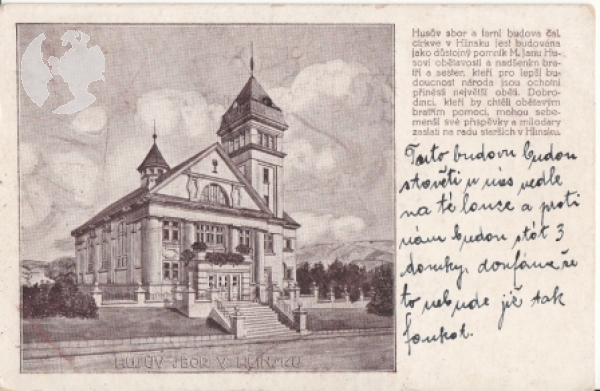 Husův sbor a farní budova čsl.
církve v Hlinsku jest budována
jako důstojný pomník M. Janu Hu-
sovi obětavostí a nadšením bra-
tří a sester, kteří pro lepší bu-
doucnost národa jsou ochotni
přinésti největší oběti. Dobro-
dinci, kteří by chtěli obětavým
bratřím pomoci, mohou sebe-
menší své příspěvky a milodary
zaslati na radu starších v Hlinsku.
Tuto budovu budou
stavěti u nás vedle
na té louce a proti
nám budou stát 3
domky, doufáme že
to nebude již tak
foukat.
HUSŮV SBOR V HLINSKU